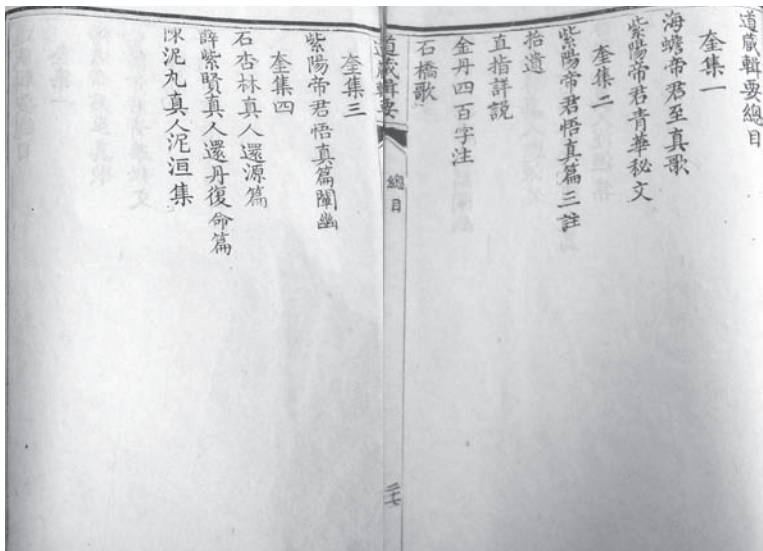 道藏輯要總目
奎集一
海蟾帝君至真歌
紫陽帝君青華秘文
奎集二
紫陽帝君悟真篇三註
拾遺
直指詳説
金丹四百字注
石橋歌
道藏輯要
總目
二十七
奎集三
紫陽帝君悟真篇闡幽
奎集四
石杏林真人還源篇
薛紫賢真人還丹復命篇
陳泥丸真人泥洹集